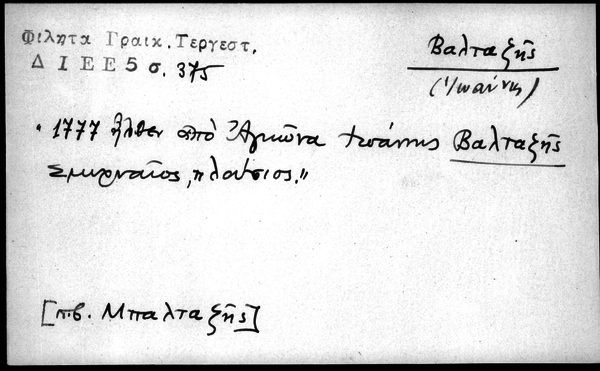 Φιλητα Γραικ. Τεργεστ.
Δ Ι Ε Ε 5 σ. 375
Βαλταξῆς
(Ἰωάννης)
"1777 ἦλθεν ἀπὸ Ἀγκῶνα Ἰωάννης Βαλταξῆς
Σμυρναῖος, πλούσιος."
[πβ. Μπαλταξῆς]